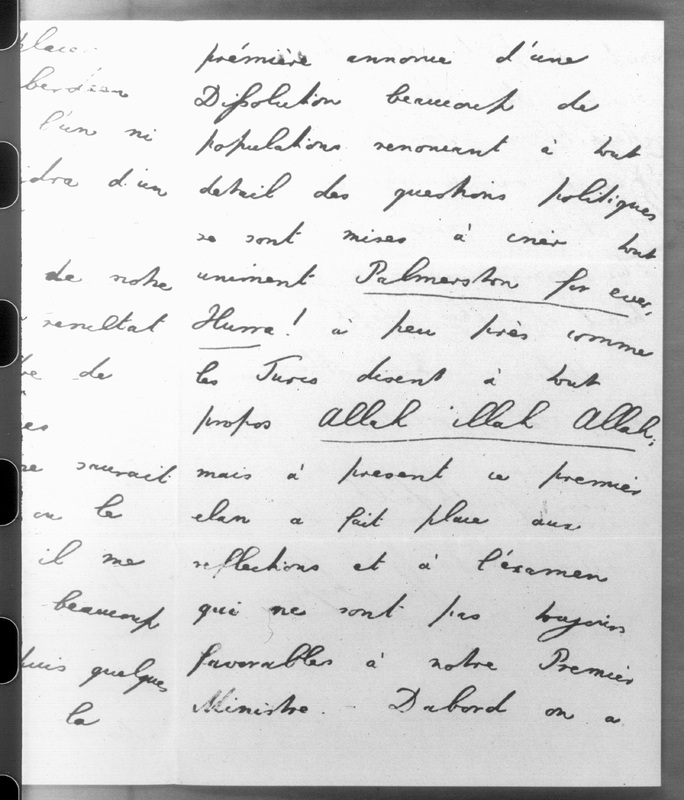 place.
l'un ni
d'un
de notre
resultat
de
saurait
ou le
il me
beaucoup
quelques
la
prémière annonce d'une
Dissolution beaucoup de
populations renoncant à tout
detail des questions politiques
se sont mises à crier tout
uniment Palmerston for ever,
Hurra! à peu près comme
les Turcs disent à tout
propos Allah illah Allah,
mais à present ce premier
elan a fait place aux
reflections et à l'éxamen
qui ne sont pas toujours
favorables à notre Premier
Ministre. – Dabord on a